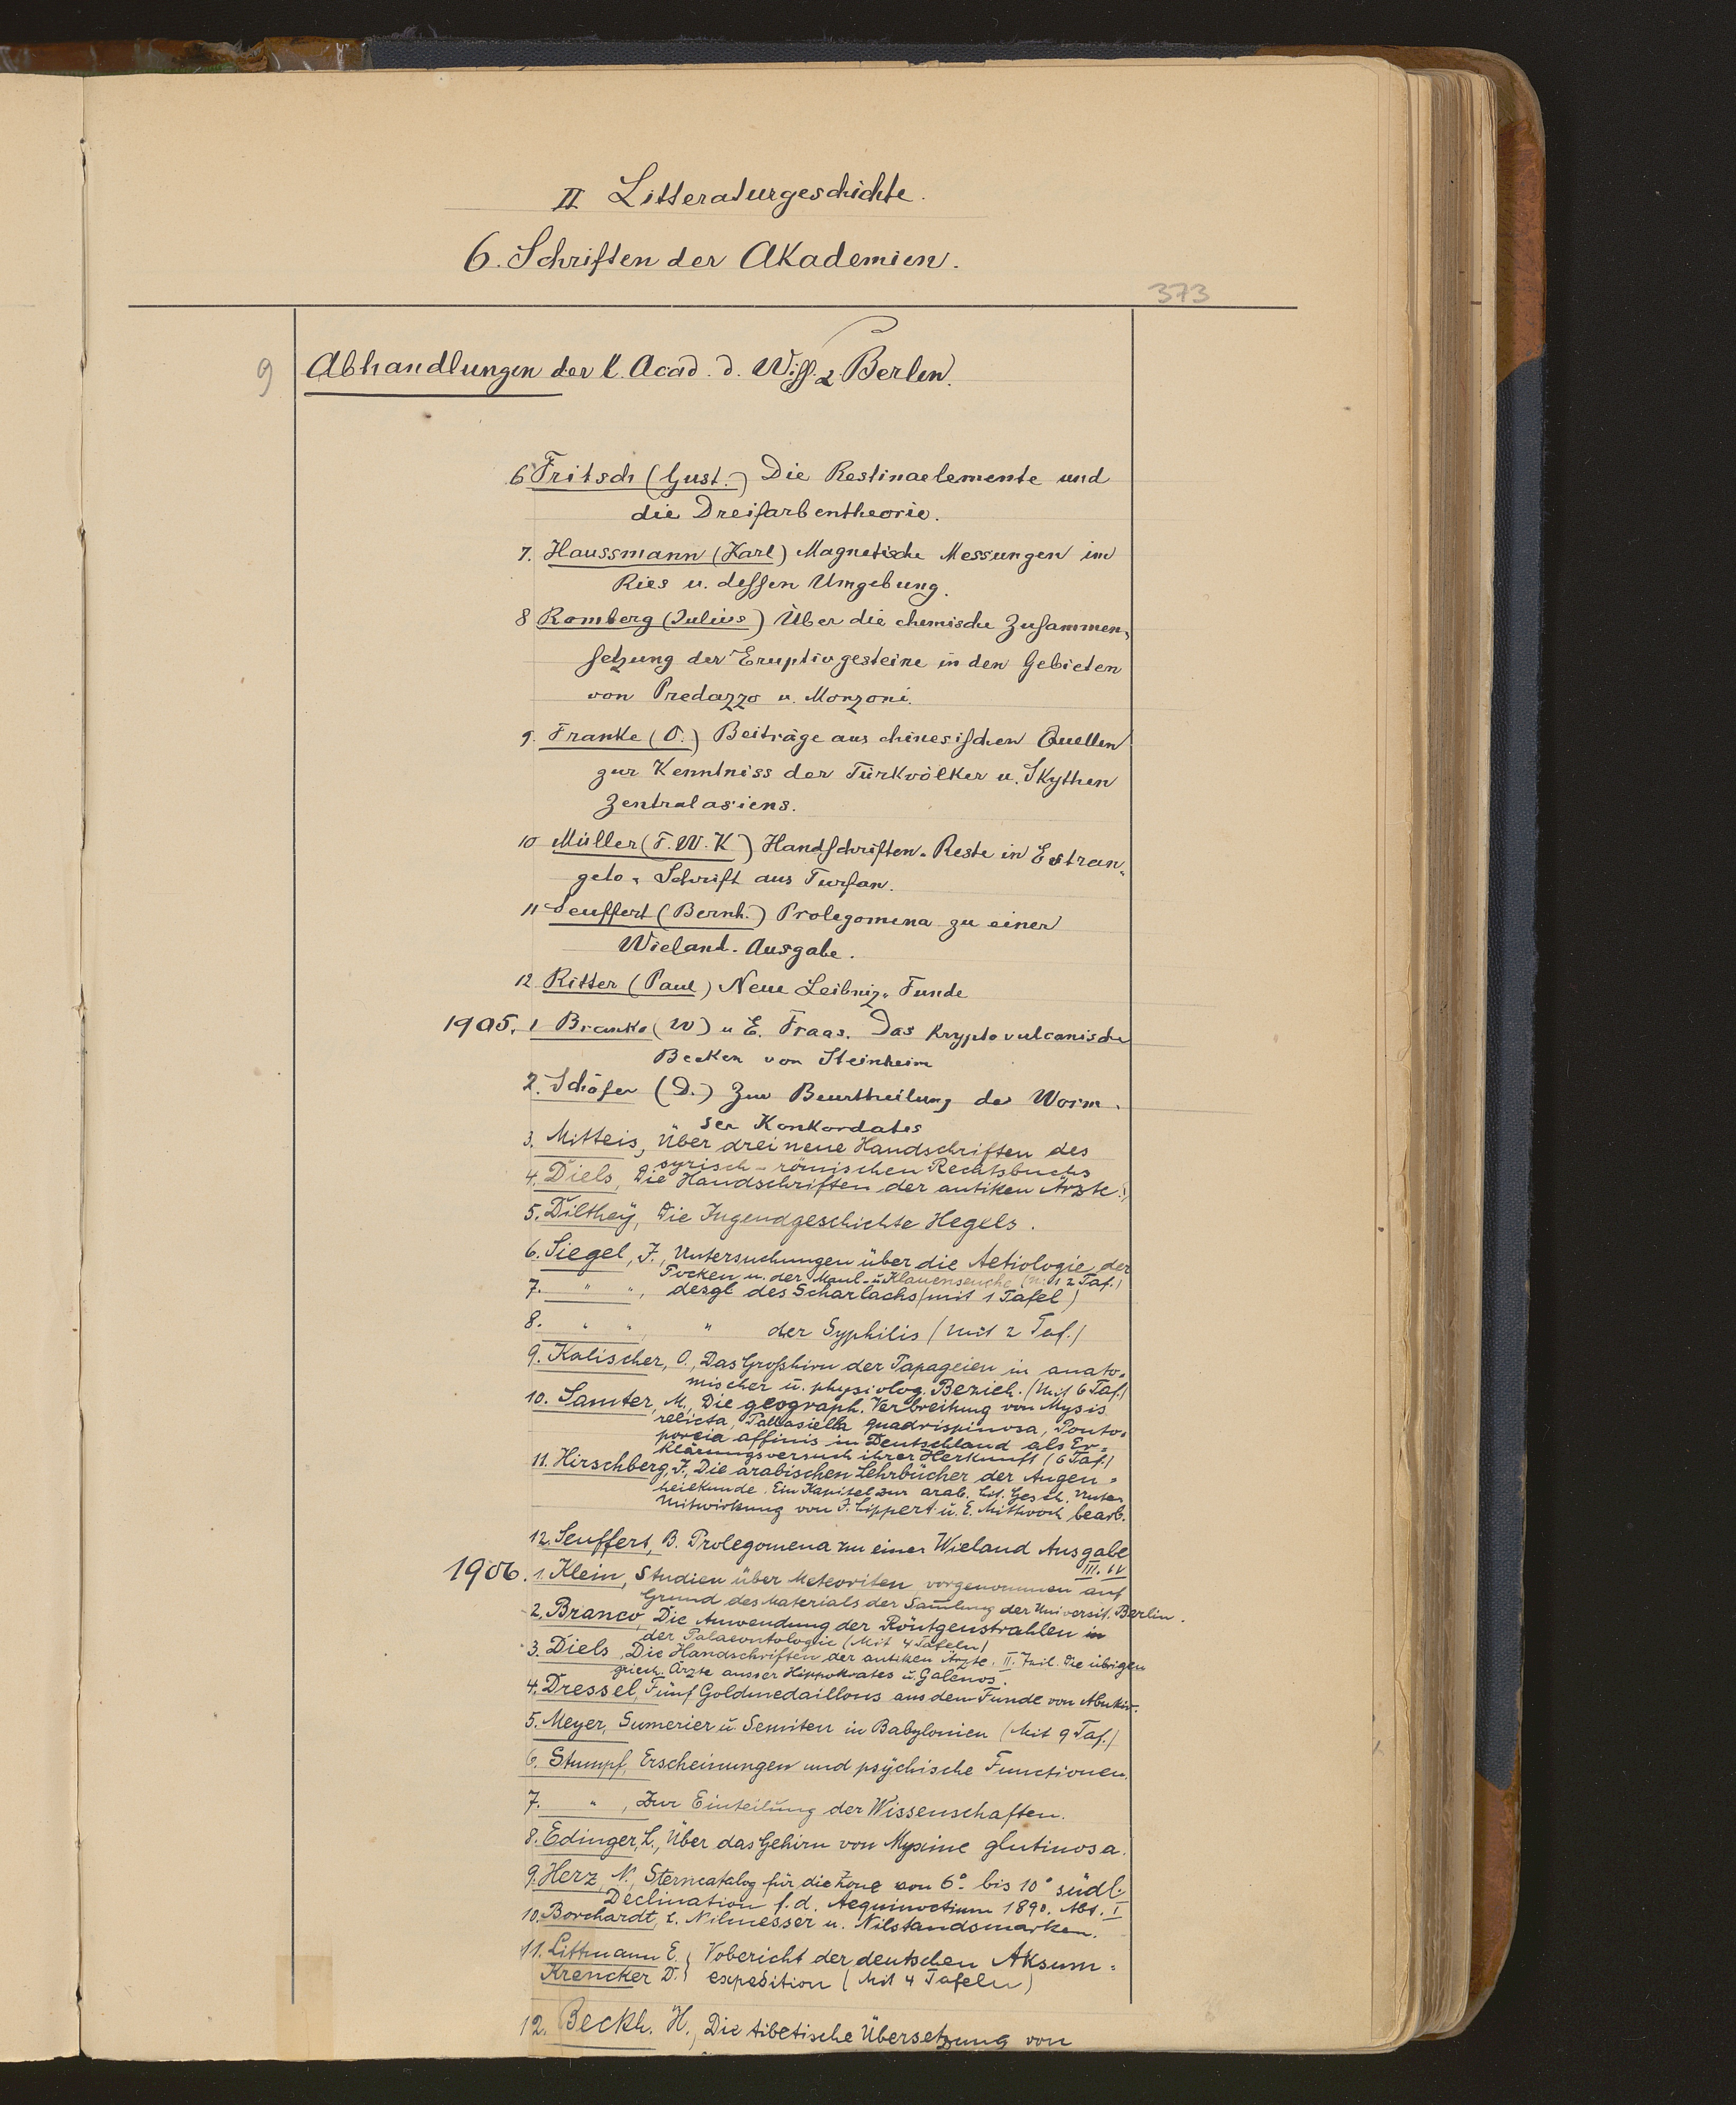 II Litteraturgeschichte.
6. Schriften der Akademien.
373
9 Abhandlungen der k. Acad. d. Wiss. z. Berlin.
6 Fritsch (Gust.) Die Restinaelemente und
die Dreifarbentheorie.
7. Haussmann (Karl) Magnetische Messungen im
Ries u. dessen Umgebung.
8 Romberg (Julius) Über die chemische Zusammen-
setzung der Eruptivgesteine in den Gebieten
von Predazzo u. Monzoni.
9. Franke (O.) Beiträge aus chinesischen Quellen
zur Kenntniss der Türkvölker u. Skythen
Zentralasiens.
10 Müller (F. W. K.) Handschriften-Reste in Estran-
gelo-Schrift aus Turfan.
11 Seuffert (Bernh.) Prolegomena zu einer
Wieland-Ausgabe.
12 Ritter (Paul) Neue Leibniz-Funde
1905. 1 Branko (W) u E. Fraas. Das kryptovulcanische
Becken von Steinheim
2. Schäfer (D.) Zur Beurtheilung des Worm-
ser Konkordates
3. Mitteis, Über drei neue Handschriften des
syrisch-römischen Rechtsbuchs
4. Diels, Die Handschriften der antiken Ärzte. I,
5. Dilthey, Die Jugendgeschichte Hegels.
6. Siegel, J., Untersuchungen über die Aetiologie der
Pocken u. der Maul- u Klauenseuche (mit 2 Taf.)
7. " ", desgl des Scharlachs (mit 1 Tafel)
8. " ", " der Syphilis (mit 2 Taf.)
9. Kalischer, O., Das Großhirn der Papageien in anato-
mischer u. physiolog. Bezieh. (Mit 6 Taf.)
10. Samter, M., Die geograph. Verbreitung von Mysis
relicta, Pallasiella quadrispinosa, Ponto-
poreia affinis in Deutschland als Er-
klärungsversuch ihrer Herkunft (6 Taf.)
11. Hirschberg, J., Die arabischen Lehrbücher der Augen-
heilkunde. Ein Kapitel zur arab. Lit. Gesch. Unter
Mitwirkung von J. Lippert u. E. Mittwoch bearb.
12. Seuffert, B. Prolegomena zu einer Wieland Ausgabe
III. IV
1906. 1. Klein, Studien über Meteoriten, vorgenommen auf
Grund des Materials der Samlung der Universit. Berlin.
2. Branco, Die Anwendung der Röntgenstrahlen in
der Palaeontologie (Mit 4 Tafeln)
3. Diels, Die Handschriften der antiken Ärzte. II. Teil. Die übrigen
griech. Ärzte ausser Hippokrates u. Galenos.
4. Dressel, Fünf Goldmedaillons aus dem Funde von Abukir.
5. Meyer, Sumerier u. Semiten in Babylonien (Mit 9 Taf.)
6. Stumpf, Erscheinungen und psychische Functionen.
7. ", Zur Einteilung der Wissenschaften.
8. Edinger, L., Über das Gehirn von Myxine glutinosa.
9. Herz, N., Sterncatalog für die Zone von 6° bis 10° südl.
Declination f. d. Aequinoctium 1890. Abt. I
10. Borchardt, L. Nilmesser u. Nilstandsmarken.
11. Littmann E. } Vobericht der deutschen Aksum-
Krencker D. } expedition (Mit 4 Tafeln)
12. Beckh. H., Die tibetische Übersetzung von